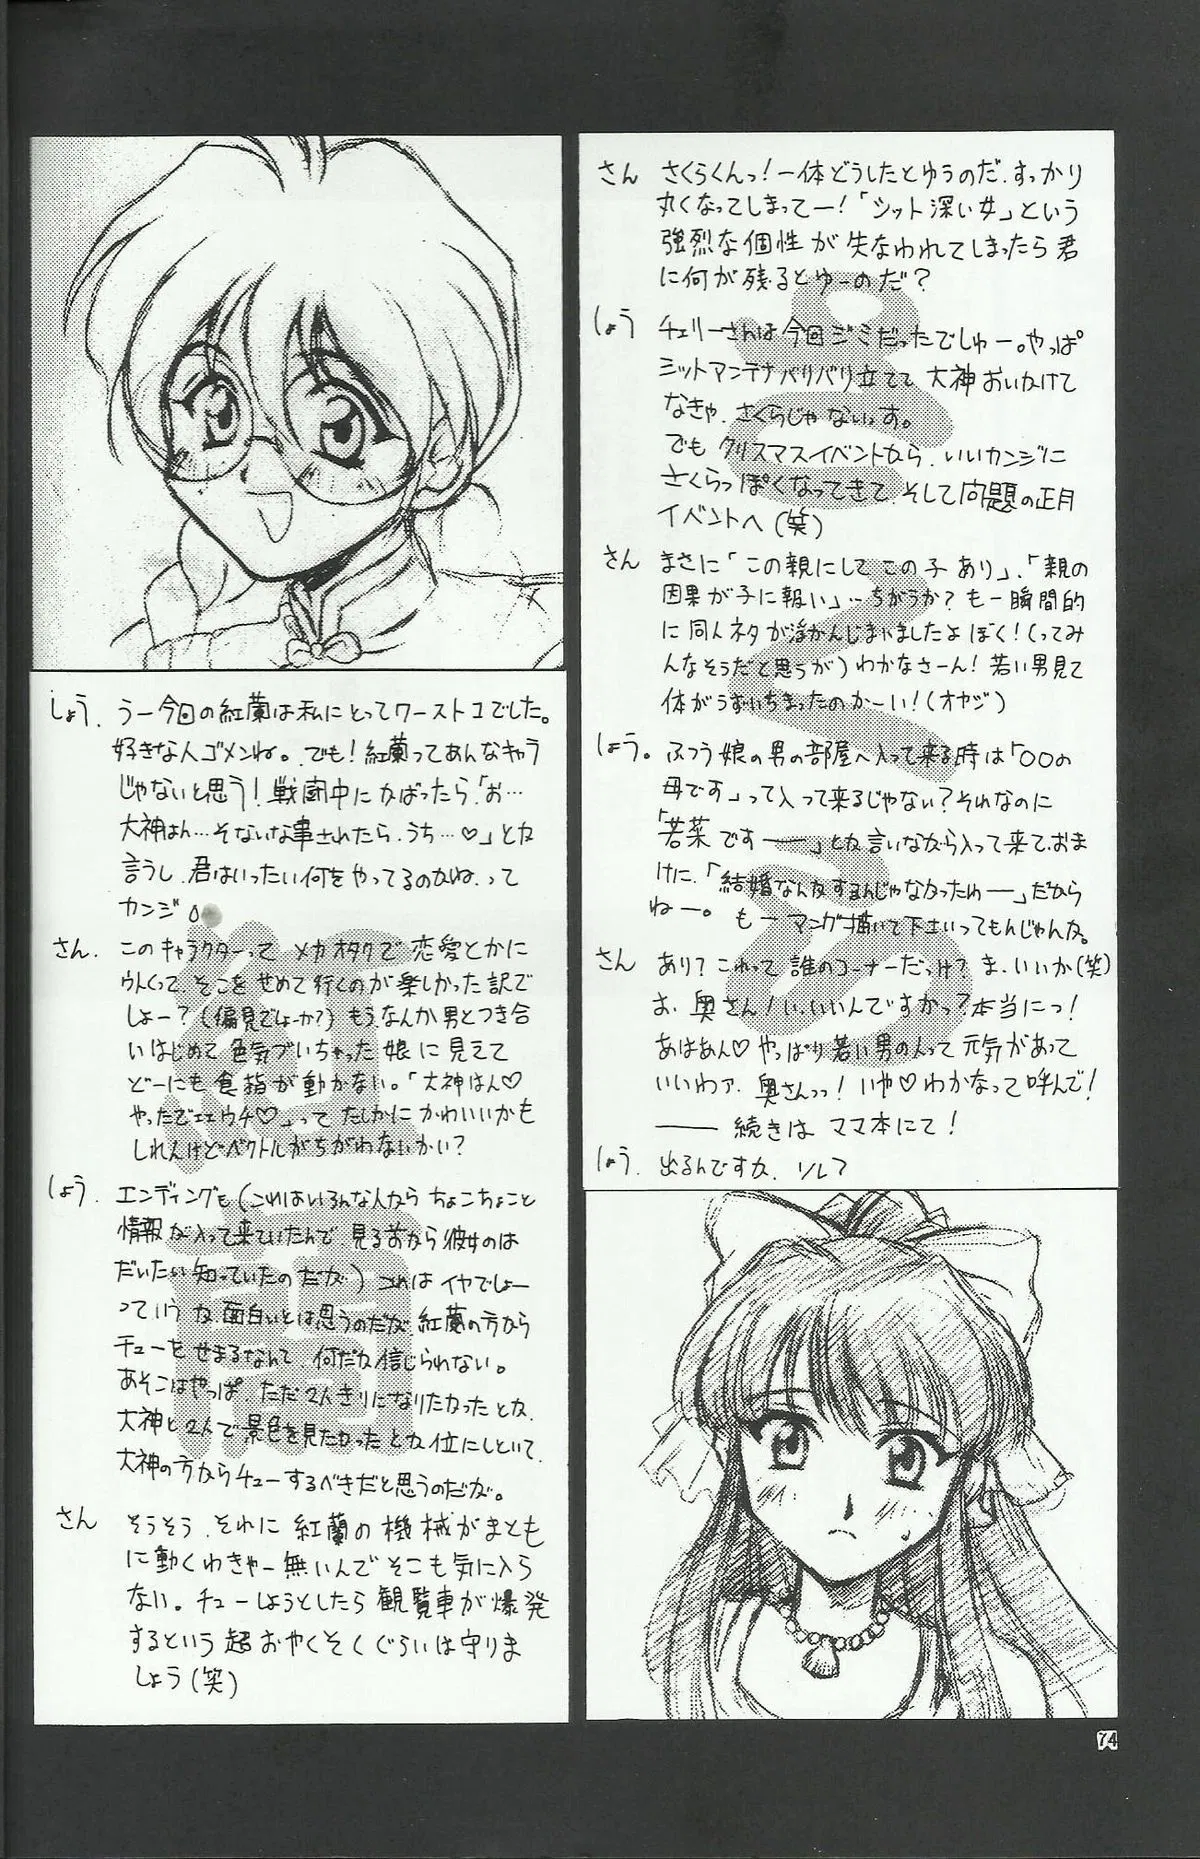 しょう、うー今回の紅蘭は私にとってワースト1でした。
好きな人ゴメンね。でも!紅蘭ってあんなキャラ
じゃないと思う!戦闘中にかばったら「お…
大神はん…そないな事されたら、うち…♡」とか
言うし、君はいったい何をやってるのかね、って
カンジ
さん、このキャラクターって メカオタクで 恋愛とかに
ウトくって、そこをせめて行くのが楽しかった訳で
しょー?(偏見でしょーか?)もう、なんか男とつき合
いはじめて色気づいちゃった娘に見えて
どーにも食指が動かない。「大神はん♡
やったでエエウチ♡」って たしかに かわいいかも
しれんけどベクトルがちがわないかい?
しょう、エンディングも(これはいろんな人から ちょこちょこと
情報が入って来ていたんで、見る前から彼女のは
だいたい知っていたのだが)これは イヤでしょー
っていうか、面白いとは思うのだが紅蘭の方から
チューをせまるなんて、何だか信じられない。
あそこはやっぱ、ただ2人きりになりたかったとか、
大神と2人で景色を見たかったとか位にしといて、
大神の方からチューするべきだと思うのだが。
さん そうそう、それに 紅蘭の機械がまとも
に動くわきゃー無いんで そこも気に入ら
ない。チューしようとしたら観覧車が爆発
するという超おやくそくぐらいは守りま
しょう(笑)
さん さくらくんっ!一体どうしたとゆうのだ、すっかり
丸くなってしまってー!「シット深い女」という
強烈な個性が失なわれてしまったら君
に何が残るとゆーのだ?
しょう チェリーさんは今回ジミだったでしゅー。やっぱ
シットアンテナバリバリ立てて 大神おいかけて
なきゃ、さくらじゃないっす。
でも クリスマスイベントから、いいカンジに
さくらっぽくなってきて、そして問題の正月
イベントへ(笑)
さん まさに「この親にして この子 あり」、「親の
因果が子に報い」…ちがうか?もー瞬間的
に同人ネタが浮かんじまいましたよ ぼく!(ってみ
んなそうだと思うが)わかなさーん!若い男見て
体がうずいちまったのかーい!(オヤジ)
しょう。ふつう娘の男の部屋へ入って来る時は「○○の
母です」って入って来るじゃない?それなのに
「若菜です──」とか言いながら入って来て、おま
けに、「結婚なんかするんじゃなかったわ──」だから
ねー。 もー マンガ描いて下さいってもんじゃんか。
さん あり?これって 誰のコーナーだっけ?ま、いいか(笑)
お、奥さん!い、いいんですかっ?本当にっ!
あはあん♡ やっぱり若い男の人って 元気があって
いいわァ、奥さんっっ!いや♡ わかなって呼んで!
──続きは ママ本にて!
しょう、出るんですか、ソレ?
74